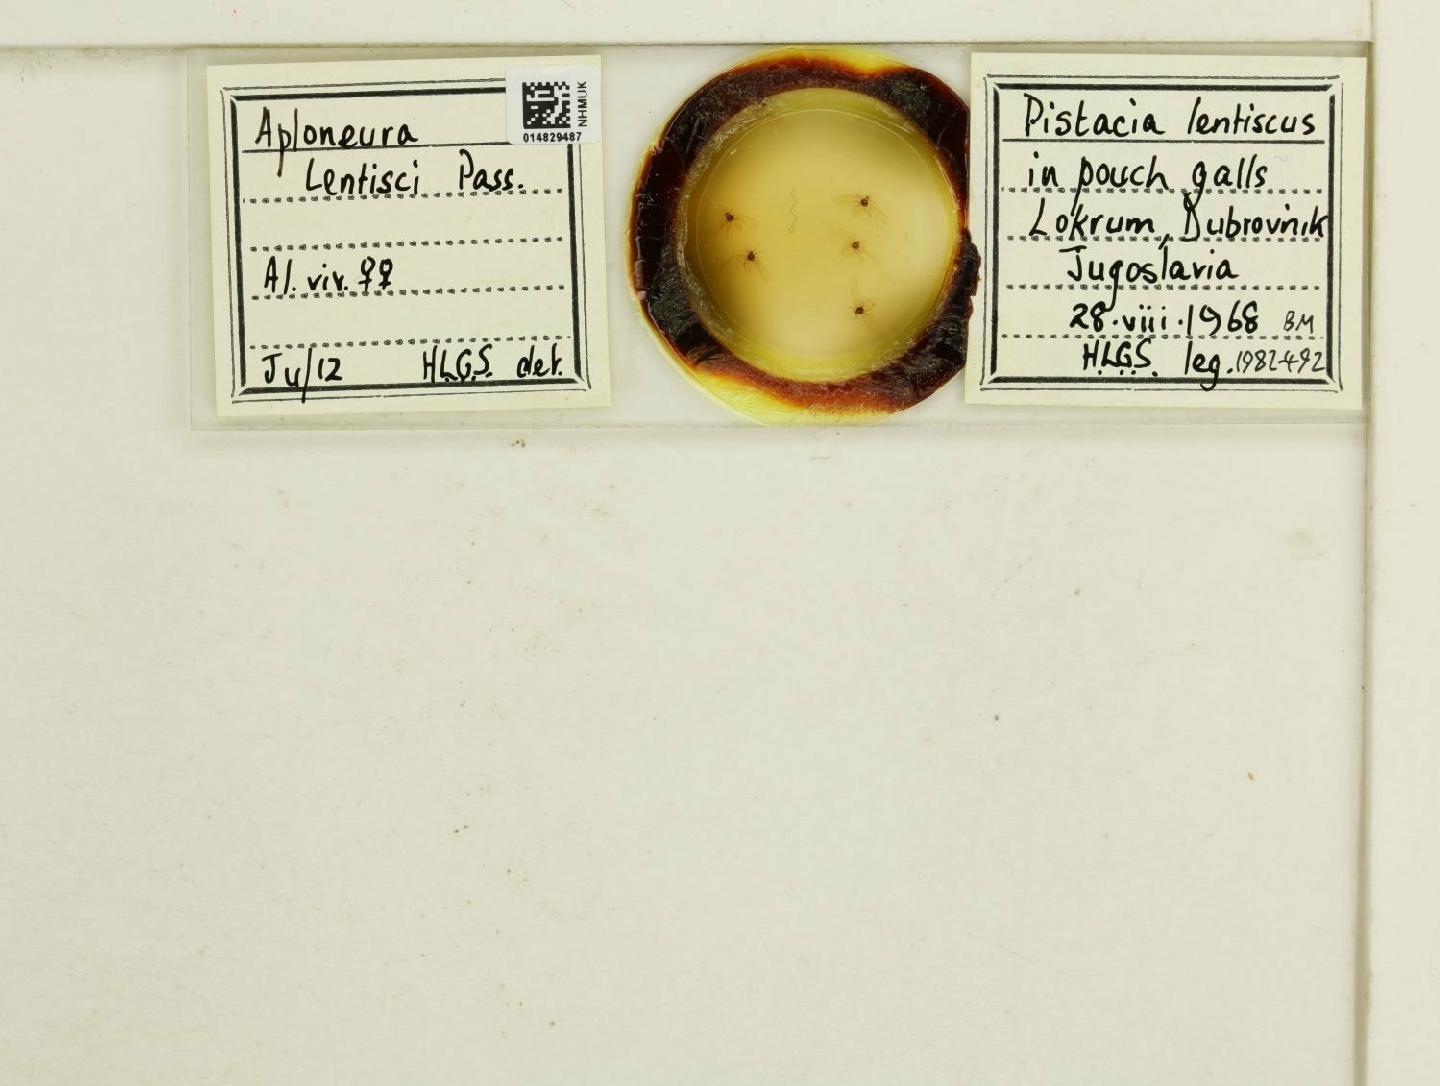 Aploneura
Lentisci Pass.
Al. viv. ♀♀
Ju/12 H.L.G.S. det.
NHMUK
014829487
Pistacia lentiscus
in pouch galls
Lokrum, Dubrovnik
Jugoslavia
28.viii.1968 BM
H.L.G.S. leg. 1982-492